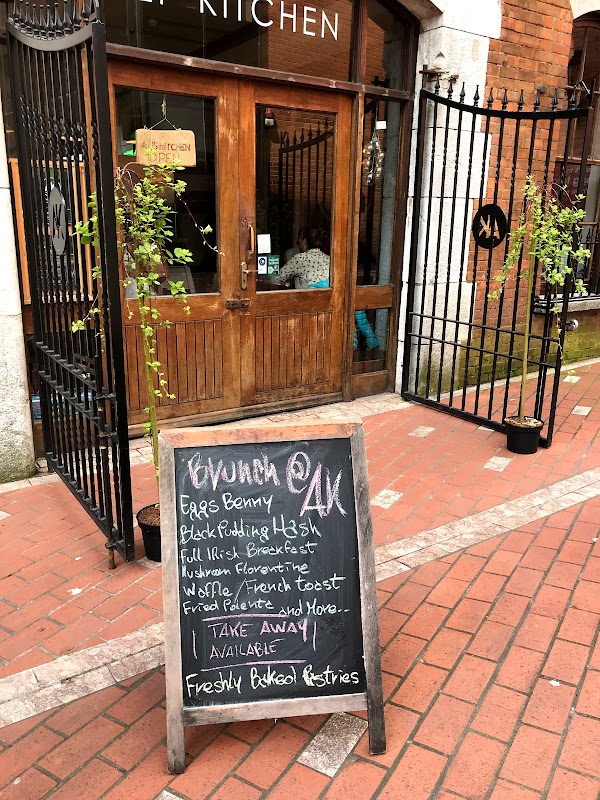 KITCHEN
ALI'S KITCHEN
OPEN
AK
AK
Brunch @
AK
Eggs Benny
Black Pudding Hash
Full Irish Breakfast
Mushroom Florentine
Waffle / French toast
Fried Polenta and More...
TAKE AWAY
AVAILABLE
Freshly Baked Pastries